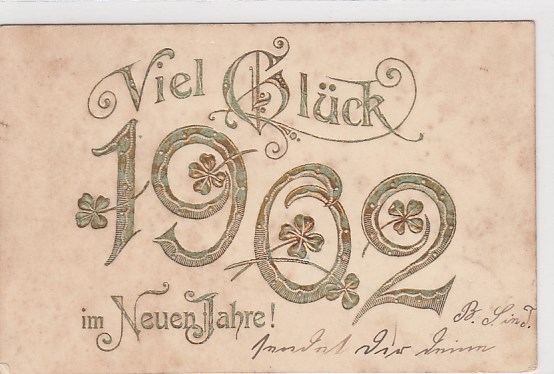 Viel Glück
1902
im Neuen Jahre!
sendet dir deine